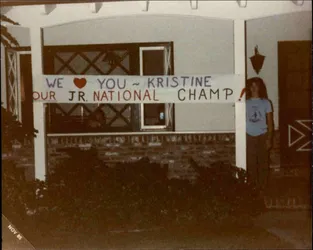 WE ♥ YOU ~ KRISTINE
OUR JR. NATIONAL CHAMP